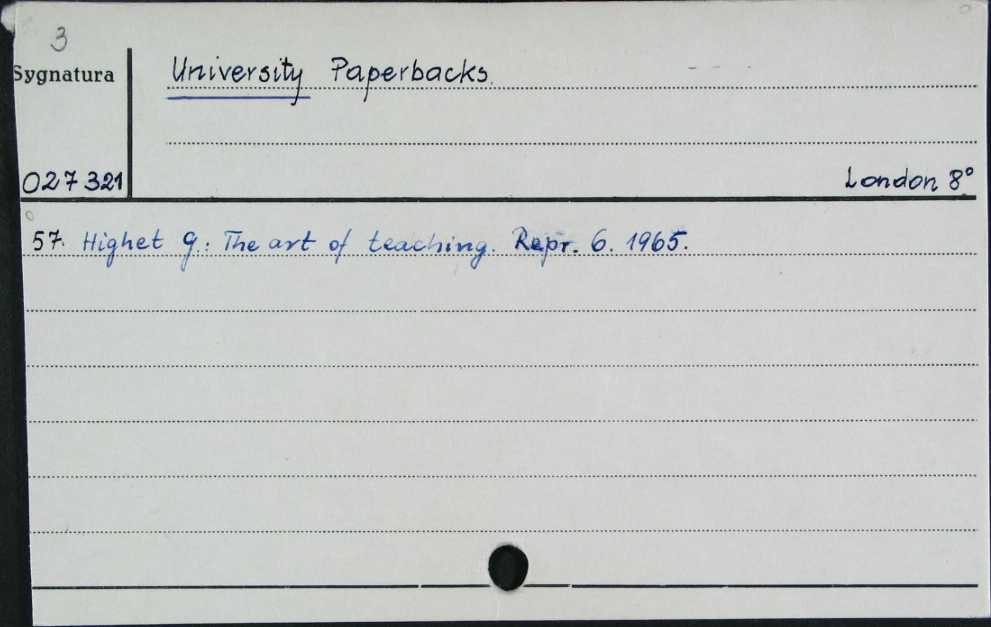 3
Sygnatura
University Paperbacks.
027321
London 8°
57. Highet G.: The art of teaching. Repr. 6. 1965.